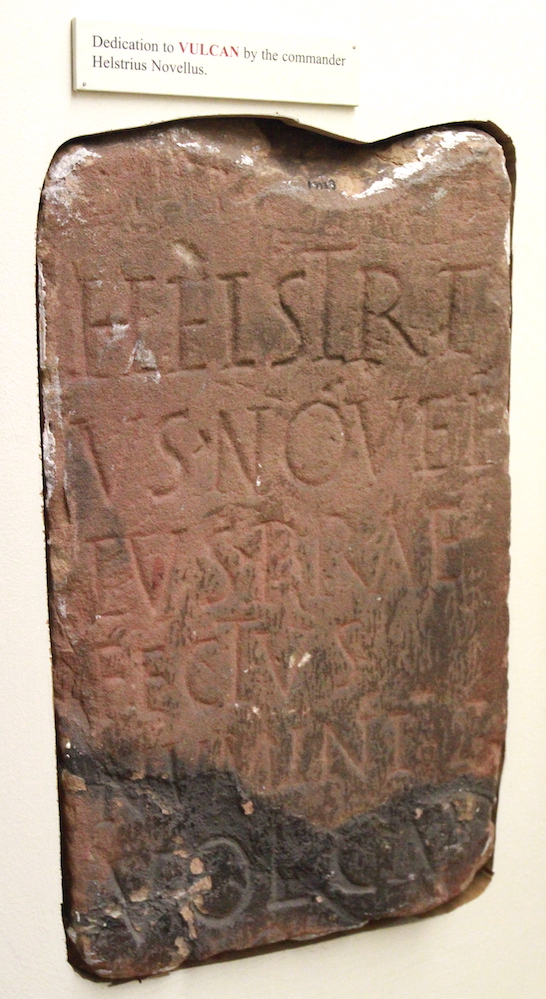 Dedication to VULCAN by the commander
Helstrius Novellus.
HELSTRI
VS·NOVEL
LVSPRAE
FECTVS
NVMINI
VOLCA